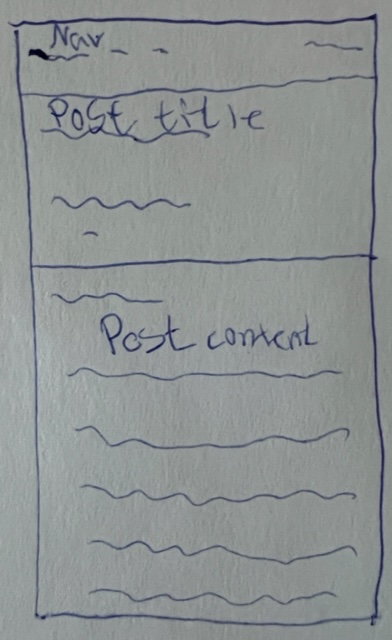 Nav
Post title
Post content